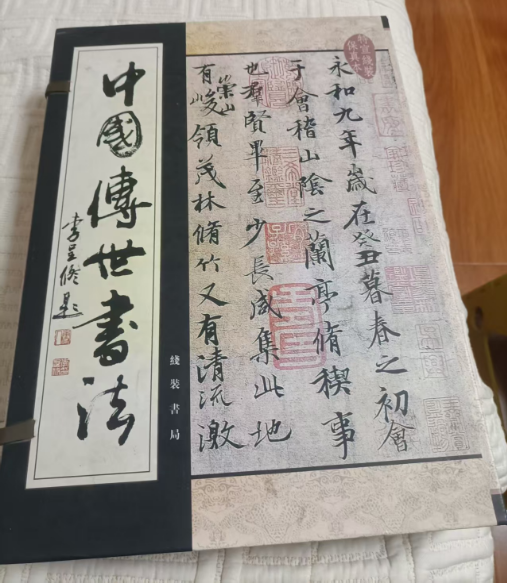 中國傳世書法
李呈修題
綫裝書局
永和九年歲在癸丑暮春之初會
于會稽山陰之蘭亭脩稧事
也羣賢畢至少長咸集此地
有崇山峻領茂林脩竹又有清流激